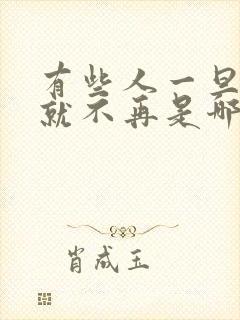 有些人一旦
就不再是那
肖成玉